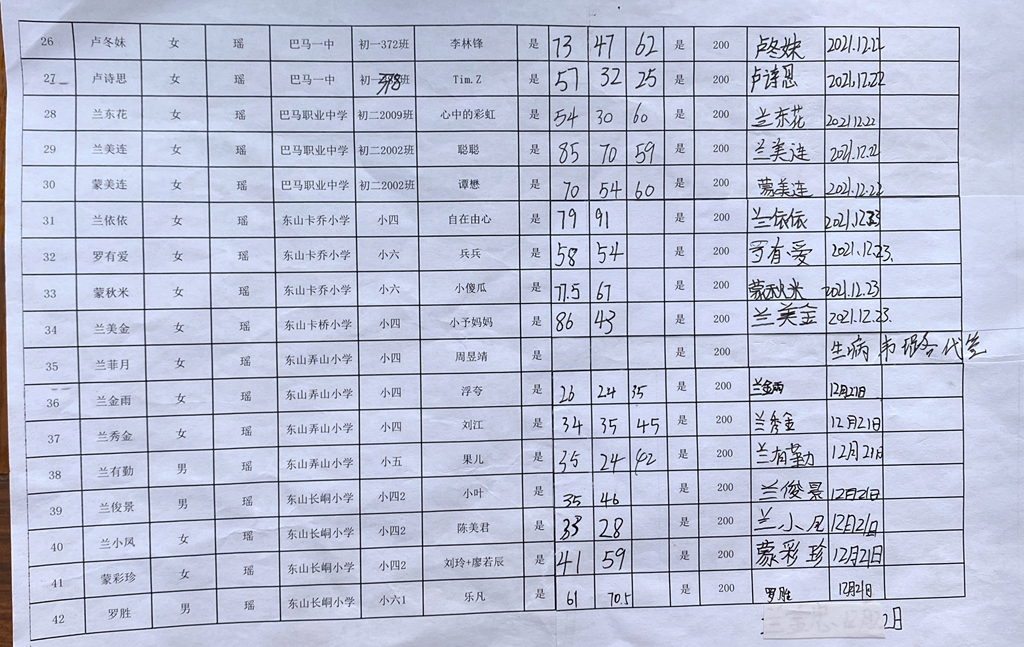 26 卢冬妹 女 瑶 巴马一中 初一372班 李林锋 是 73 47 62 是 200 卢冬妹 2021.12.22
27 卢诗思 女 瑶 巴马一中 初一378班 Tim.Z 是 57 32 25 是 200 卢诗思 2021.12.22
28 兰东花 女 瑶 巴马职业中学 初二2009班 心中的彩虹 是 54 30 60 是 200 兰东花 2021.12.22
29 兰美连 女 瑶 巴马职业中学 初二2002班 聪聪 是 85 70 59 是 200 兰美连 2021.12.22
30 蒙美连 女 瑶 巴马职业中学 初二2002班 谭懋 是 70 54 60 是 200 蒙美连 2021.12.22
31 兰依依 女 瑶 东山卡乔小学 小四 自在由心 是 79 91 是 200 兰依依 2021.12.23
32 罗有爱 女 瑶 东山卡乔小学 小六 兵兵 是 58 54 是 200 罗有爱 2021.12.23.
33 蒙秋米 女 瑶 东山卡乔小学 小六 小傻瓜 是 77.5 67 是 200 蒙秋米 2021.12.23
34 兰美金 女 瑶 东山卡桥小学 小四 小予妈妈 是 86 43 是 200 兰美金 2021.12.23.
35 兰菲月 女 瑶 东山弄山小学 小四 周昱靖 是 是 200 生病 韦 代签
36 兰金雨 女 瑶 东山弄山小学 小四 浮夸 是 26 24 35 是 200 兰金雨 12月21日
37 兰秀金 女 瑶 东山弄山小学 小四 刘江 是 34 35 45 是 200 兰秀金 12月21日
38 兰有勤 男 瑶 东山弄山小学 小五 果儿 是 35 24 42 是 200 兰有勤 12月21日
39 兰俊景 男 瑶 东山长峒小学 小四2 小叶 是 35 46 是 200 兰俊景 12月21日
40 兰小凤 女 瑶 东山长峒小学 小四2 陈美君 是 33 28 是 200 兰小凤 12月21日
41 蒙彩珍 女 瑶 东山长峒小学 小四2 刘玲+廖若辰 是 41 59 是 200 蒙彩珍 12月21日
42 罗胜 男 瑶 东山长峒小学 小六1 乐凡 是 61 70.5 是 200 罗胜 12月21日
2日